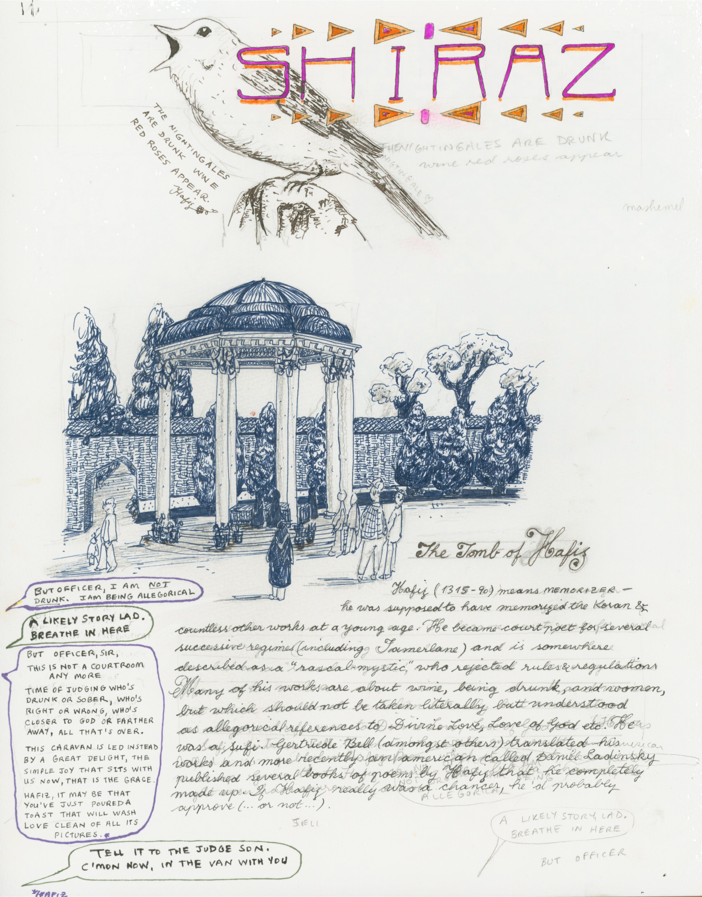 SHIRAZ
THE NIGHTINGALES
ARE DRUNK WINE
RED ROSES APPEAR.
Hafiz
THE NIGHTINGALES ARE DRUNK
wine red roses appear
The Tomb of Hafiz
Hafiz (1315-90) means MEMORIZER —
he was supposed to have memorized the Koran &
countless other works at a young age. He became court poet for several
successive regimes (including Tamerlane) and is somewhere
described as a "rascal-mystic," who rejected rules & regulations
Many of his works are about wine, being drunk, and women,
but which should not be taken literally but understood
as allegorical references to Divine Love, Love of God etc. He
was a sufi. Gertrude Bell (amongst others) translated his
works and more recently an american called Daniel Ladinsky
published several books of poems by Hafiz that he completely
made up. If Hafiz really was a chancer, he'd probably
approve (... or not...).
BUT OFFICER, I AM NOT
DRUNK. I AM BEING ALLEGORICAL
A LIKELY STORY LAD.
BREATHE IN HERE
BUT OFFICER, SIR,
THIS IS NOT A COURTROOM
ANY MORE
TIME OF JUDGING WHO'S
DRUNK OR SOBER, WHO'S
RIGHT OR WRONG, WHO'S
CLOSER TO GOD OR FARTHER
AWAY, ALL THAT'S OVER.
THIS CARAVAN IS LED INSTEAD
BY A GREAT DELIGHT, THE
SIMPLE JOY THAT SITS WITH
US NOW, THAT IS THE GRACE.
HAFIZ, IT MAY BE THAT
YOU'VE JUST POURED A
TOAST THAT WILL WASH
LOVE CLEAN OF ALL ITS
PICTURES.
TELL IT TO THE JUDGE SON.
C'MON NOW, IN THE VAN WITH YOU
HAFIZ
ALLEGORICAL
A LIKELY STORY LAD.
BREATHE IN HERE
BUT OFFICER